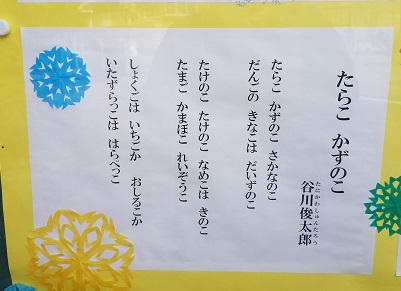 たらこ かずのこ
谷川俊太郎
たにかわしゅんたろう
たらこ かずのこ さかなのこ
だんごの きなこは だいずのこ
たけのこ たけのこ なめこは きのこ
たまご かまぼこ れいぞうこ
しょくごは いちごか おしるこか
いたずらっこは はらぺっこ